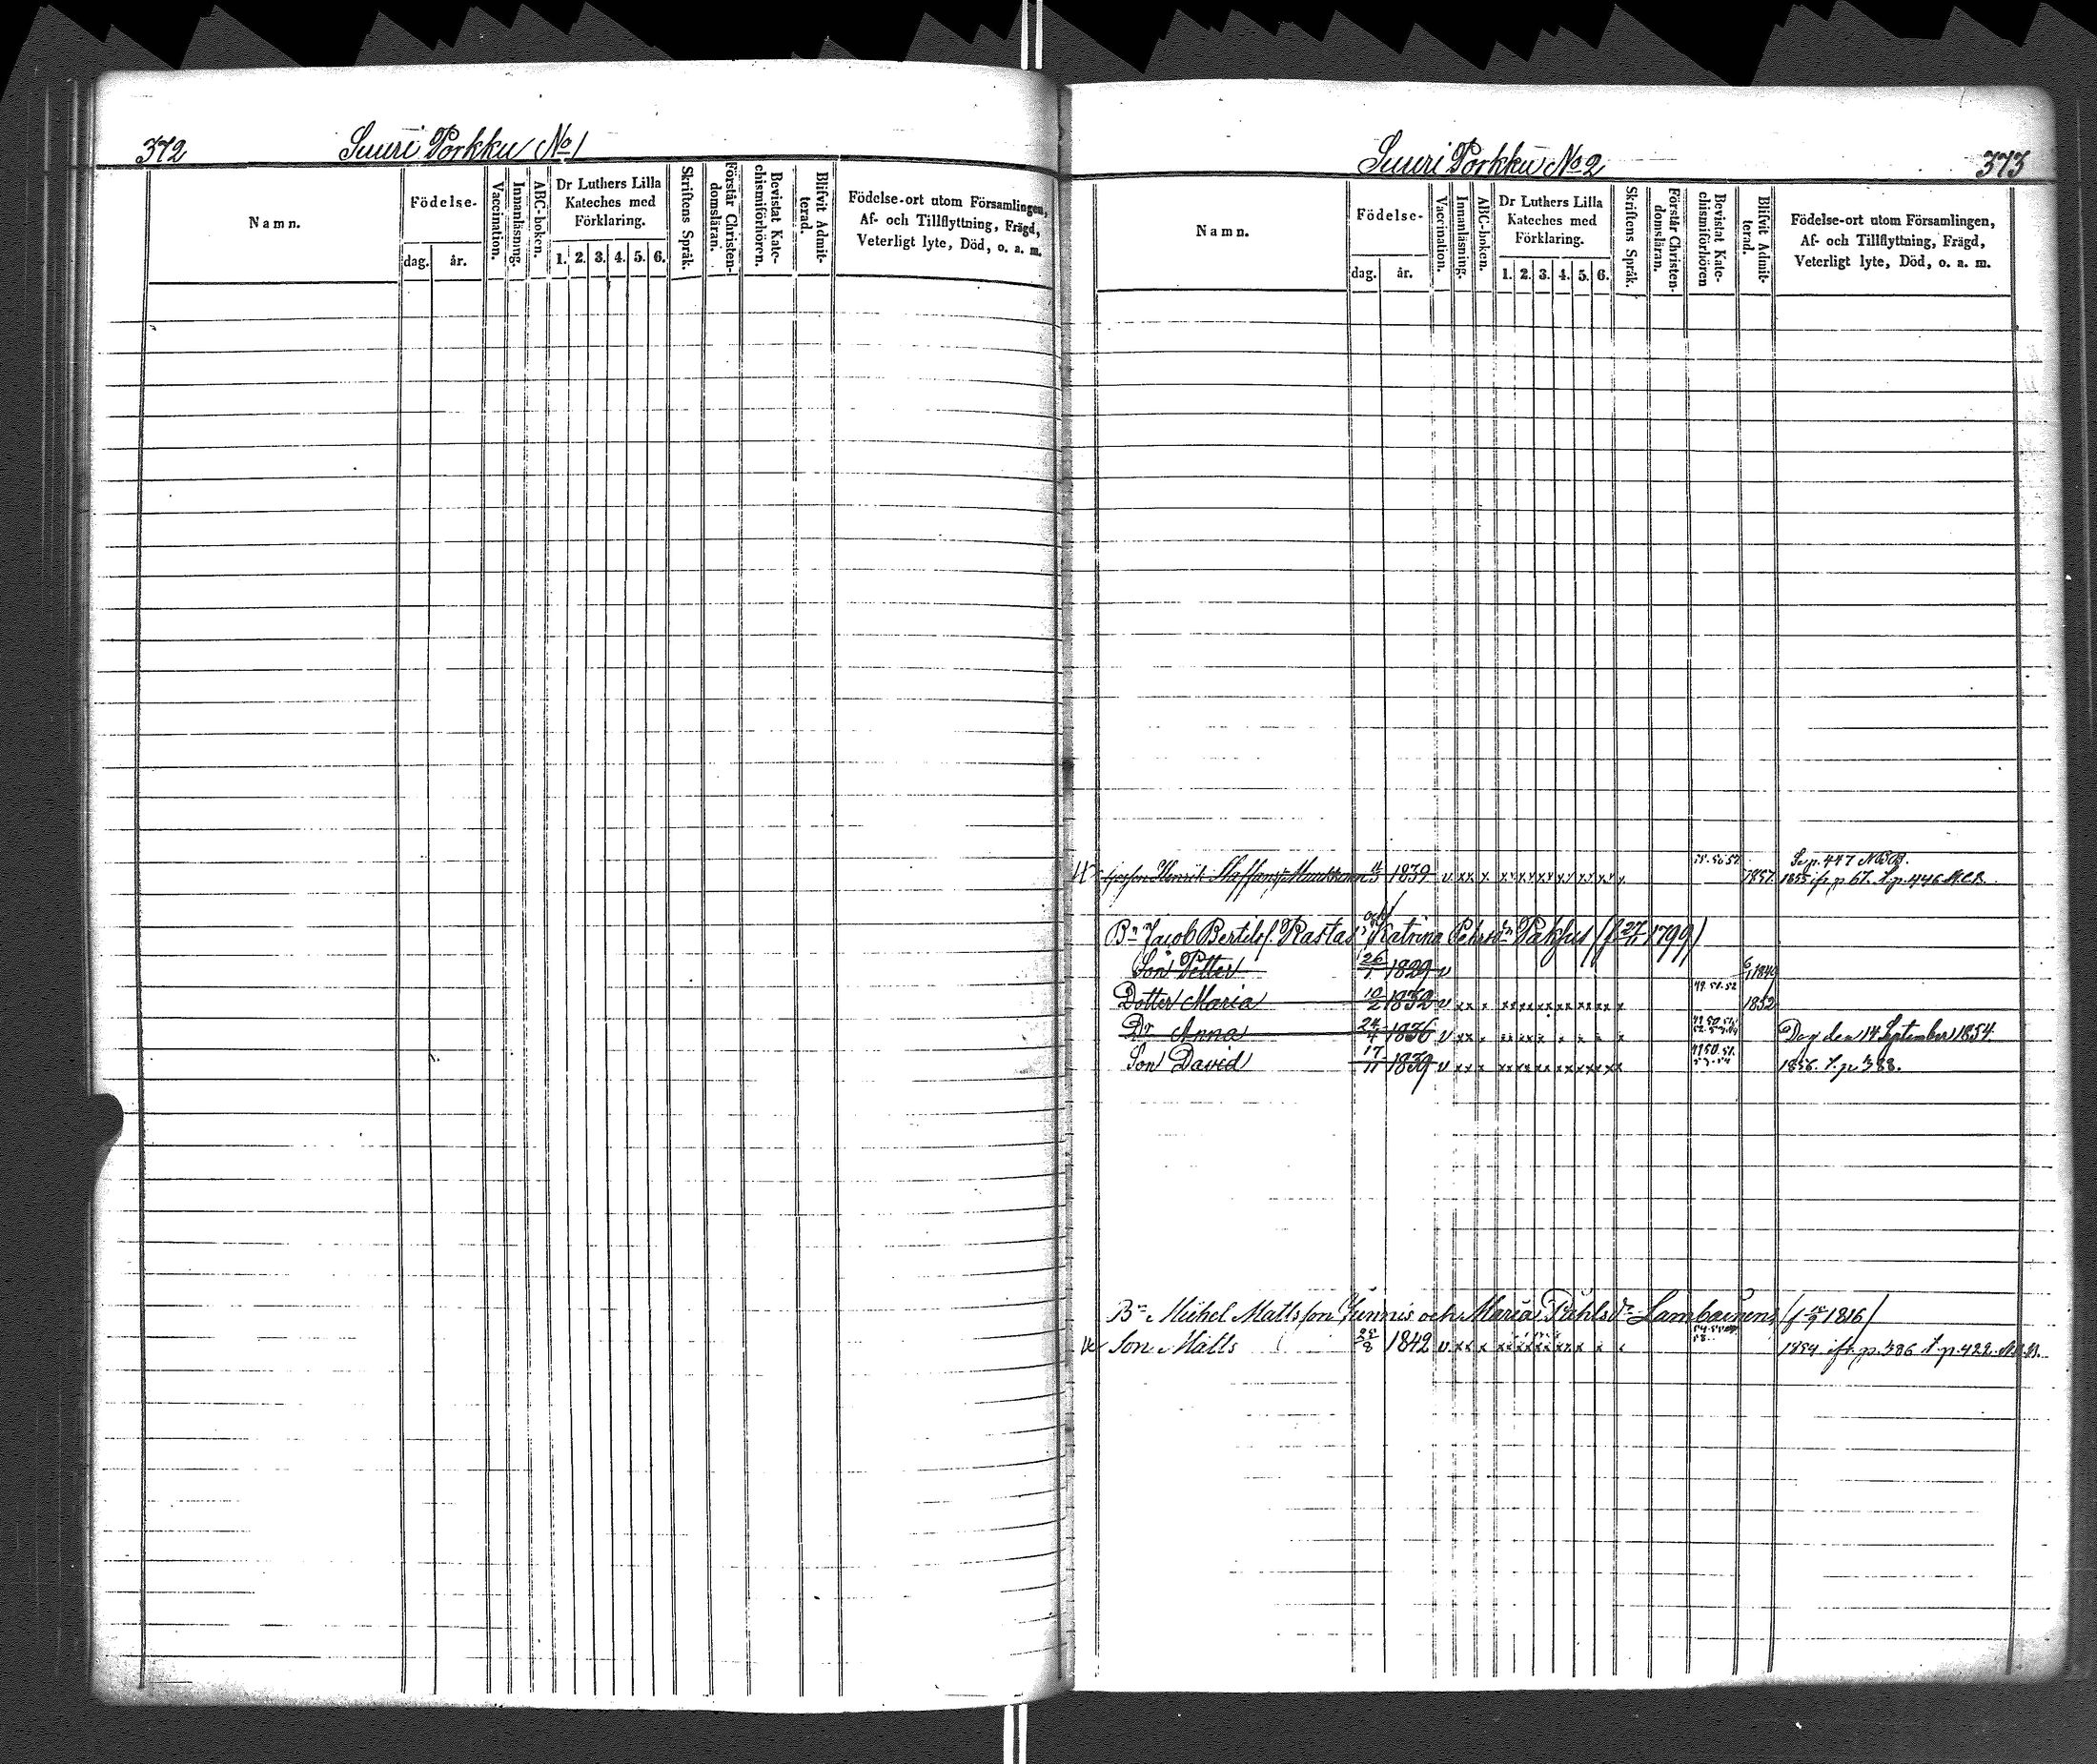 372 Suuri Porkku No 1
Namn. Födelse- dag. år. Vaccination. Innanläsning. ABC-boken. Dr Luthers Lilla Kateches med Förklaring. 1. 2. 3. 4. 5. 6. Skriftens Språk. Förstår Christendomsläran. Bevistat Katechismiförhören. Blifvit Admitterad. Födelse-ort utom Församlingen, Af- och Tillflyttning, Frägd, Veterligt lyte, Död, o. a. m.
Suuri Porkku No 2 373
Namn. Födelse- dag. år. Vaccination. Innanläsning. ABC-boken. Dr Luthers Lilla Kateches med Förklaring. 1. 2. 3. 4. 5. 6. Skriftens Språk. Förstår Christendomsläran. Bevistat Katechismiförhören Blifvit Admitterad. Födelse-ort utom Församlingen, Af- och Tillflyttning, Frägd, Veterligt lyte, Död, o. a. m.
Se p. 447
Henrik 1839 v xx x 1857 1855 p 67. p. 446
Bn Jacob Bertilsf. Rastas och Katrina Pehrsdr Pakkus (f 27/11 1799)
Son Petter 26/1 1829 v 1849
Dotter Maria 10/2 1832 v xx x 49. 51. 52 1852
Dr Anna 24/4 1836 v xx x Dog den 14 September 1854.
Son David 17/11 1839 v xx x 1856. p 388.
Bn Michel Mattsson Junnis och Maria Påhlsdr Lambainens (f 1816)
Son Matts 25/8 1842 v xx x 1854 p. 386 p. 422